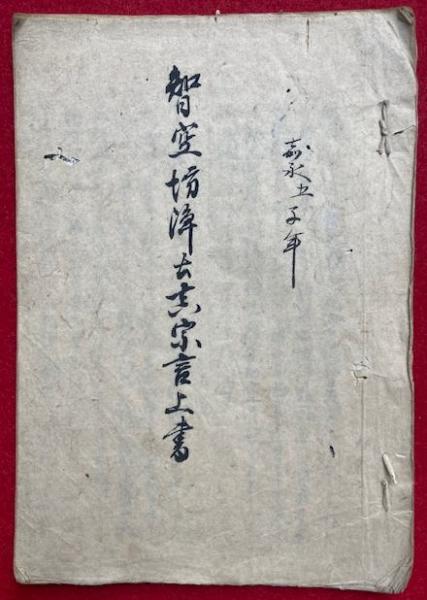 嘉永五子年
智空坊浄土真宗言上書